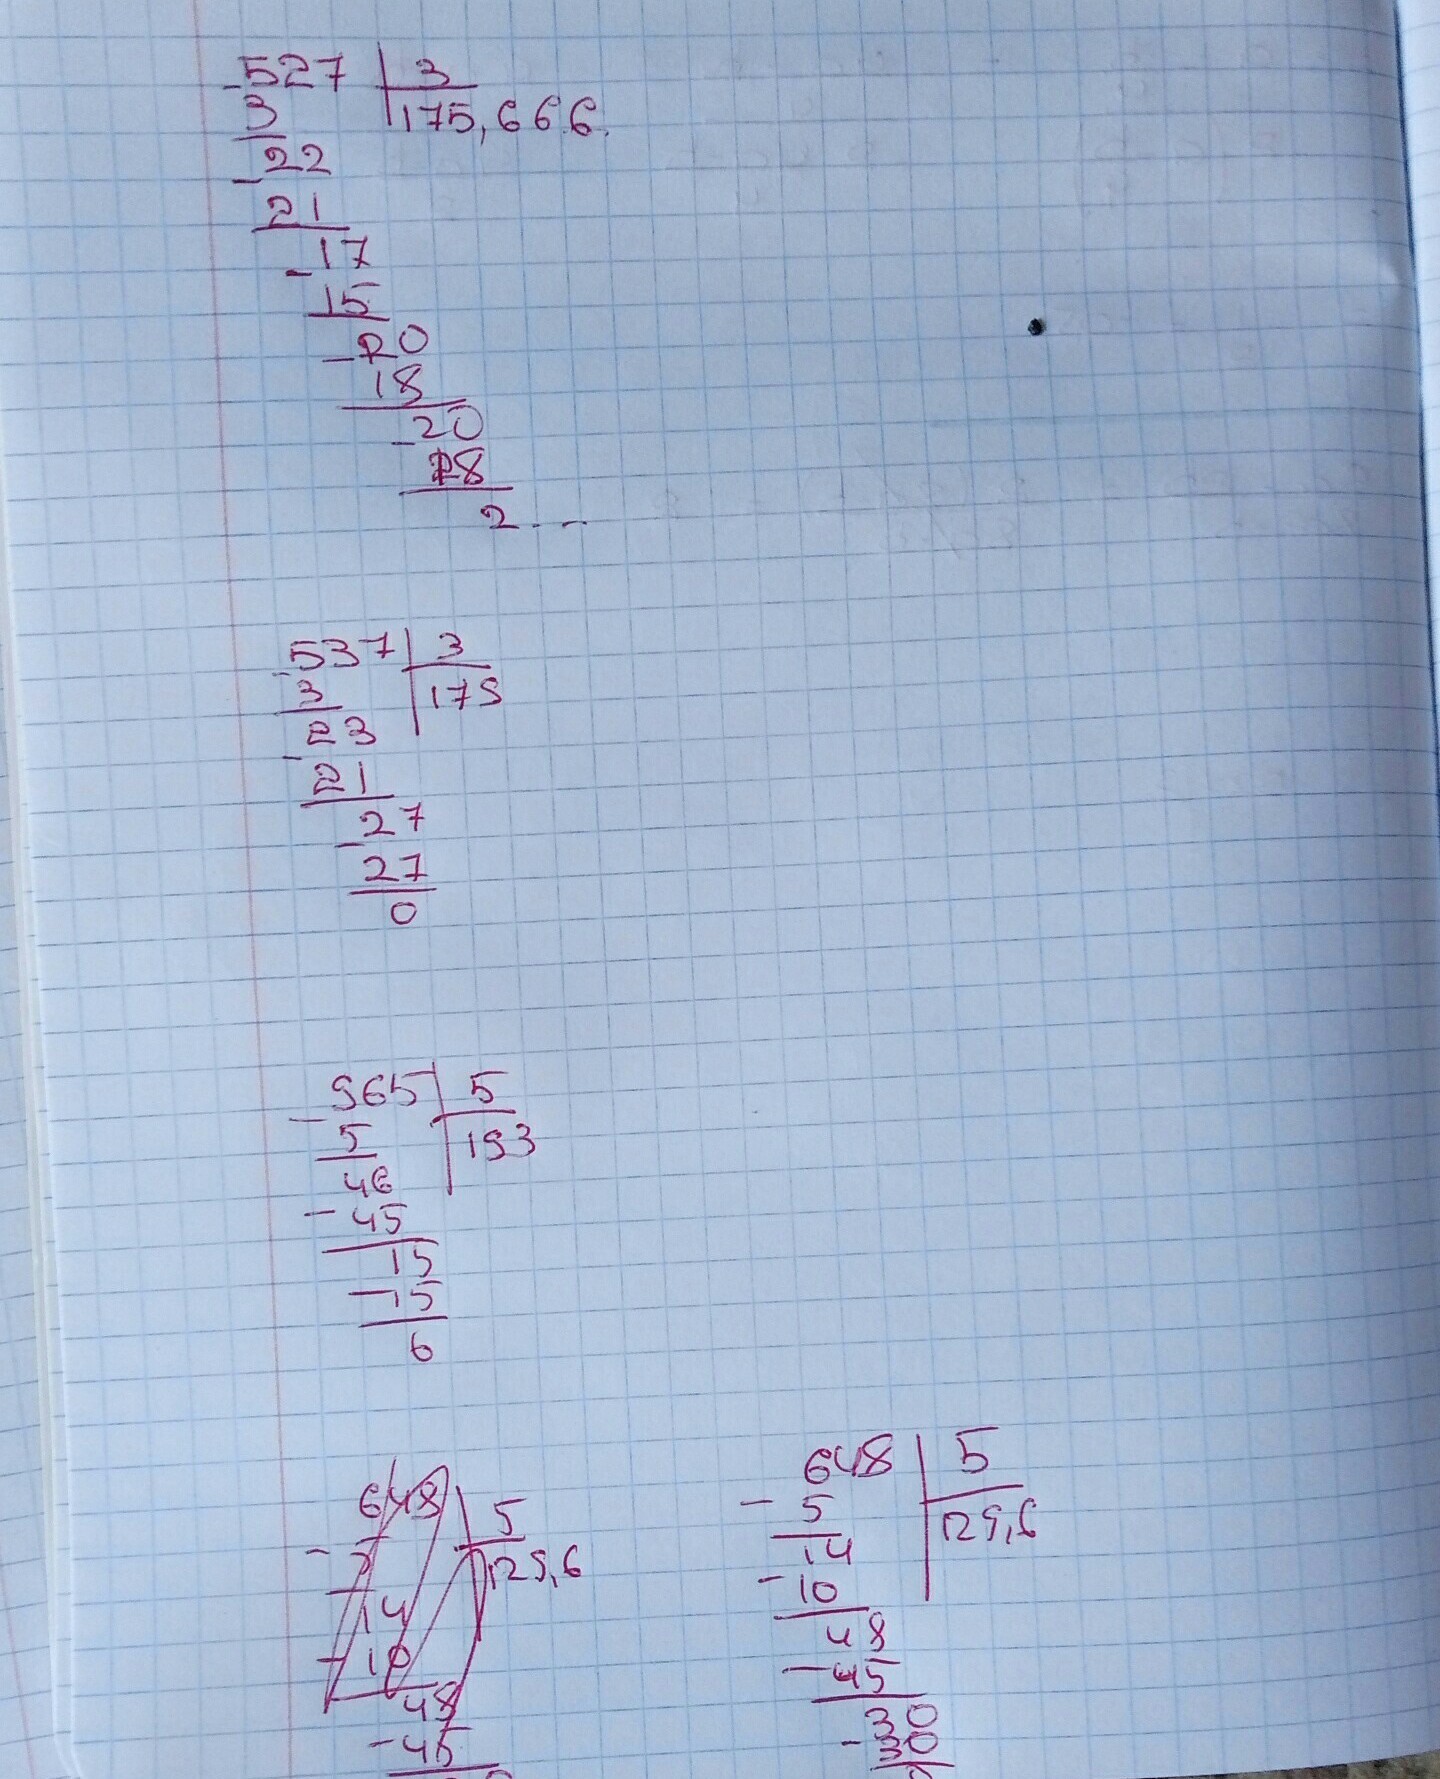 -527 | 3
3 175,666.
-22
21
-17
15
-20
18
-20
18
2...
-537 | 3
3 179
23
-21
-27
27
0
-965 | 5
5 193
46
-45
15
-15
6
648 | 5
- 5 129,6
14
-10
48
-45
648 | 5
- 5 129,6
14
-10
48
-45
30
-30
0